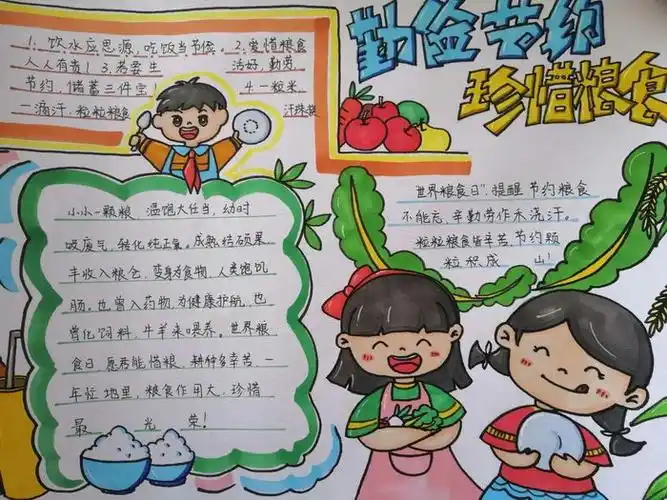 勤俭节约
珍惜粮食
1. 饮水应思源,吃饭当节俭。2. 爱惜粮食
人人有责!3. 若要生 活好,勤劳
节约,储蓄三件宝! 4 一粒米
一滴汗,粒粒粮食 汗珠换
世界粮食日”,提醒节约粮食
不能忘,辛勤劳作禾洗汗。
粒粒粮食皆辛苦,节约颗
粒积成 山!
小小一颗粮 温饱大任当,幼时
吸废气,转化纯正氧。成熟结硕果
丰收入粮仓,变身为食物,人类饱饥
肠。也曾入药物,为健康护航,也
曾化饲料,牛羊来喂养。世界粮
食日,愿君能惜粮,耕种多辛苦,一
年忙地里,粮食作用大,珍惜
最 光 荣!